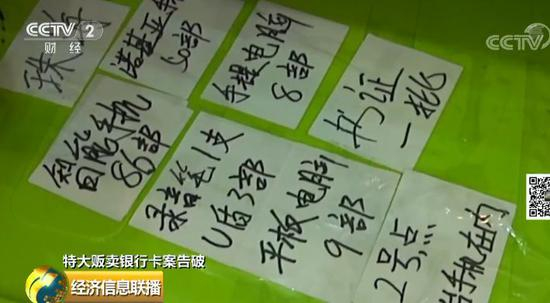 CCTV 2
财经
CCTV
诺基亚
6部
手提电脑
8部
书证
一批
智能手机
86部
录音笔1支
U盾3部
平板电脑
9部
2号点
手机在内
特大贩卖银行卡案告破
经济信息联播